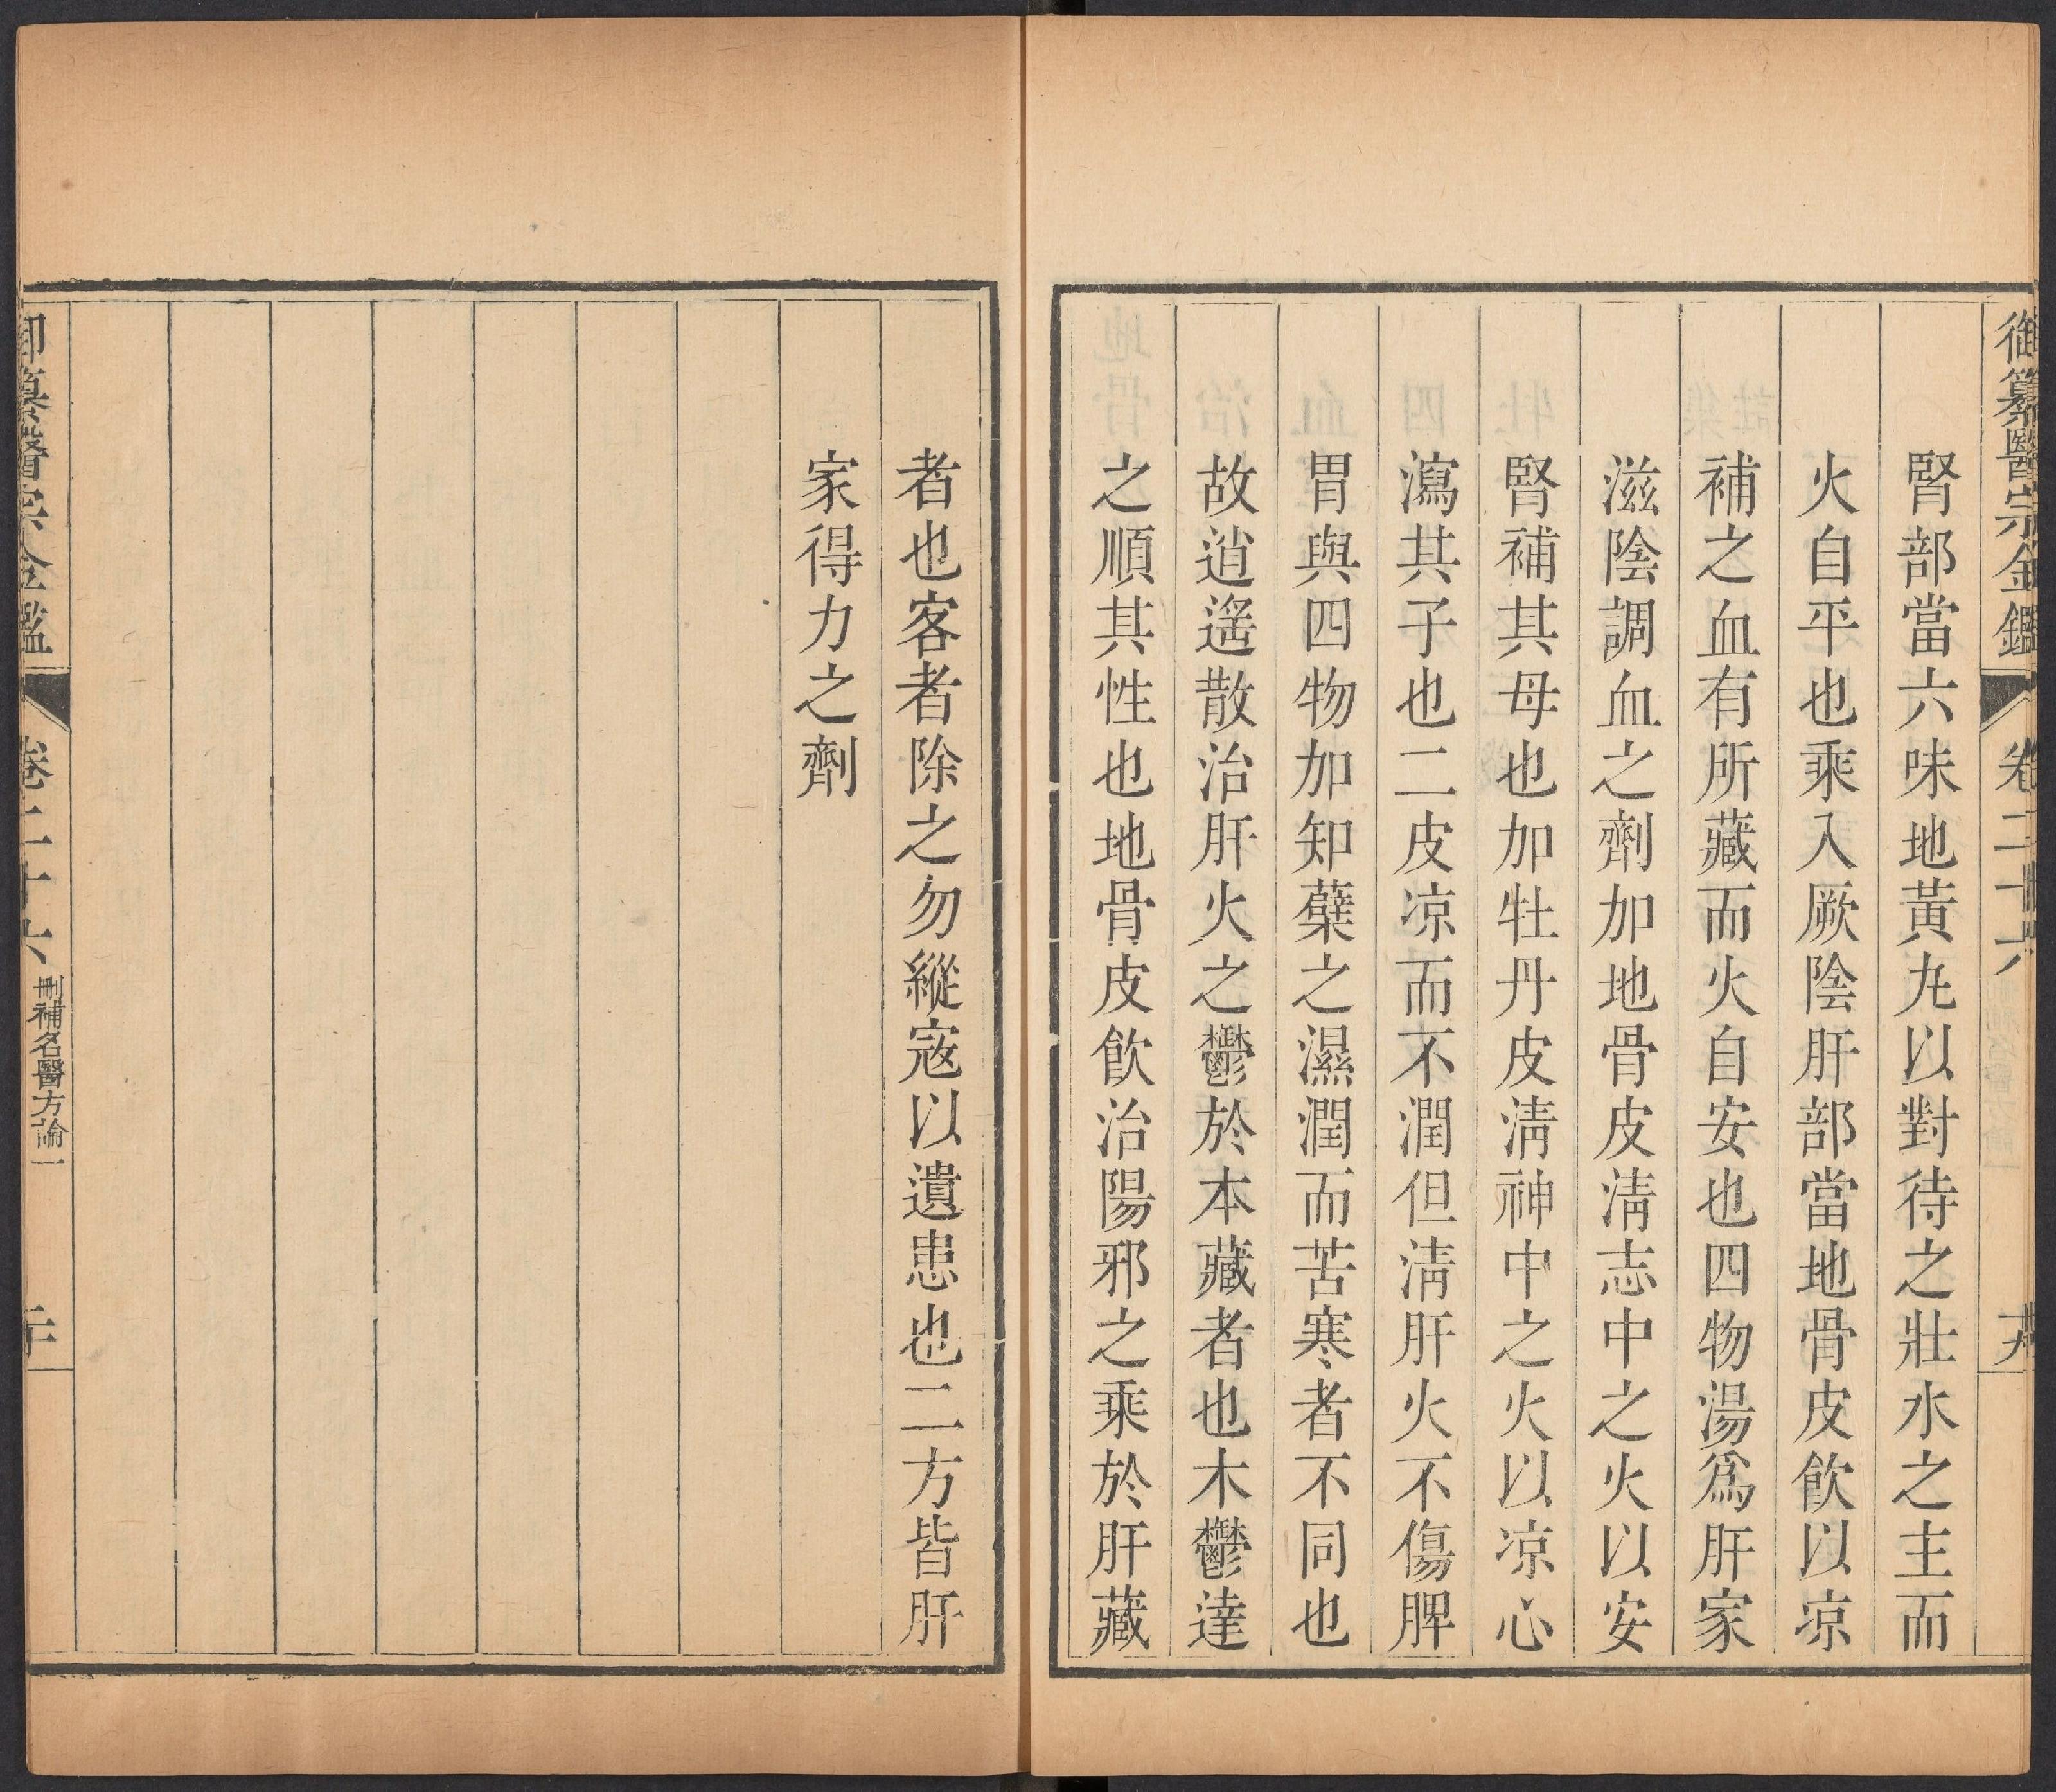 御纂醫宗金鑑 卷二十六
腎部當六味地黃丸以對待之壯水之主而
火自平也乘入厥陰肝部當地骨皮飲以凉
補之血有所藏而火自安也四物湯爲肝家
滋陰調血之劑加地骨皮淸志中之火以安
腎補其母也加牡丹皮淸神中之火以凉心
瀉其子也二皮凉而不潤但淸肝火不傷脾
胃與四物加知蘗之濕潤而苦寒者不同也
故逍遙散治肝火之鬱於本藏者也木鬱達
之順其性也地骨皮飲治陽邪之乘於肝藏
者也客者除之勿縱寇以遺患也二方皆肝
家得力之劑
御纂醫宗金鑑 卷二十六 刪補名醫方論一